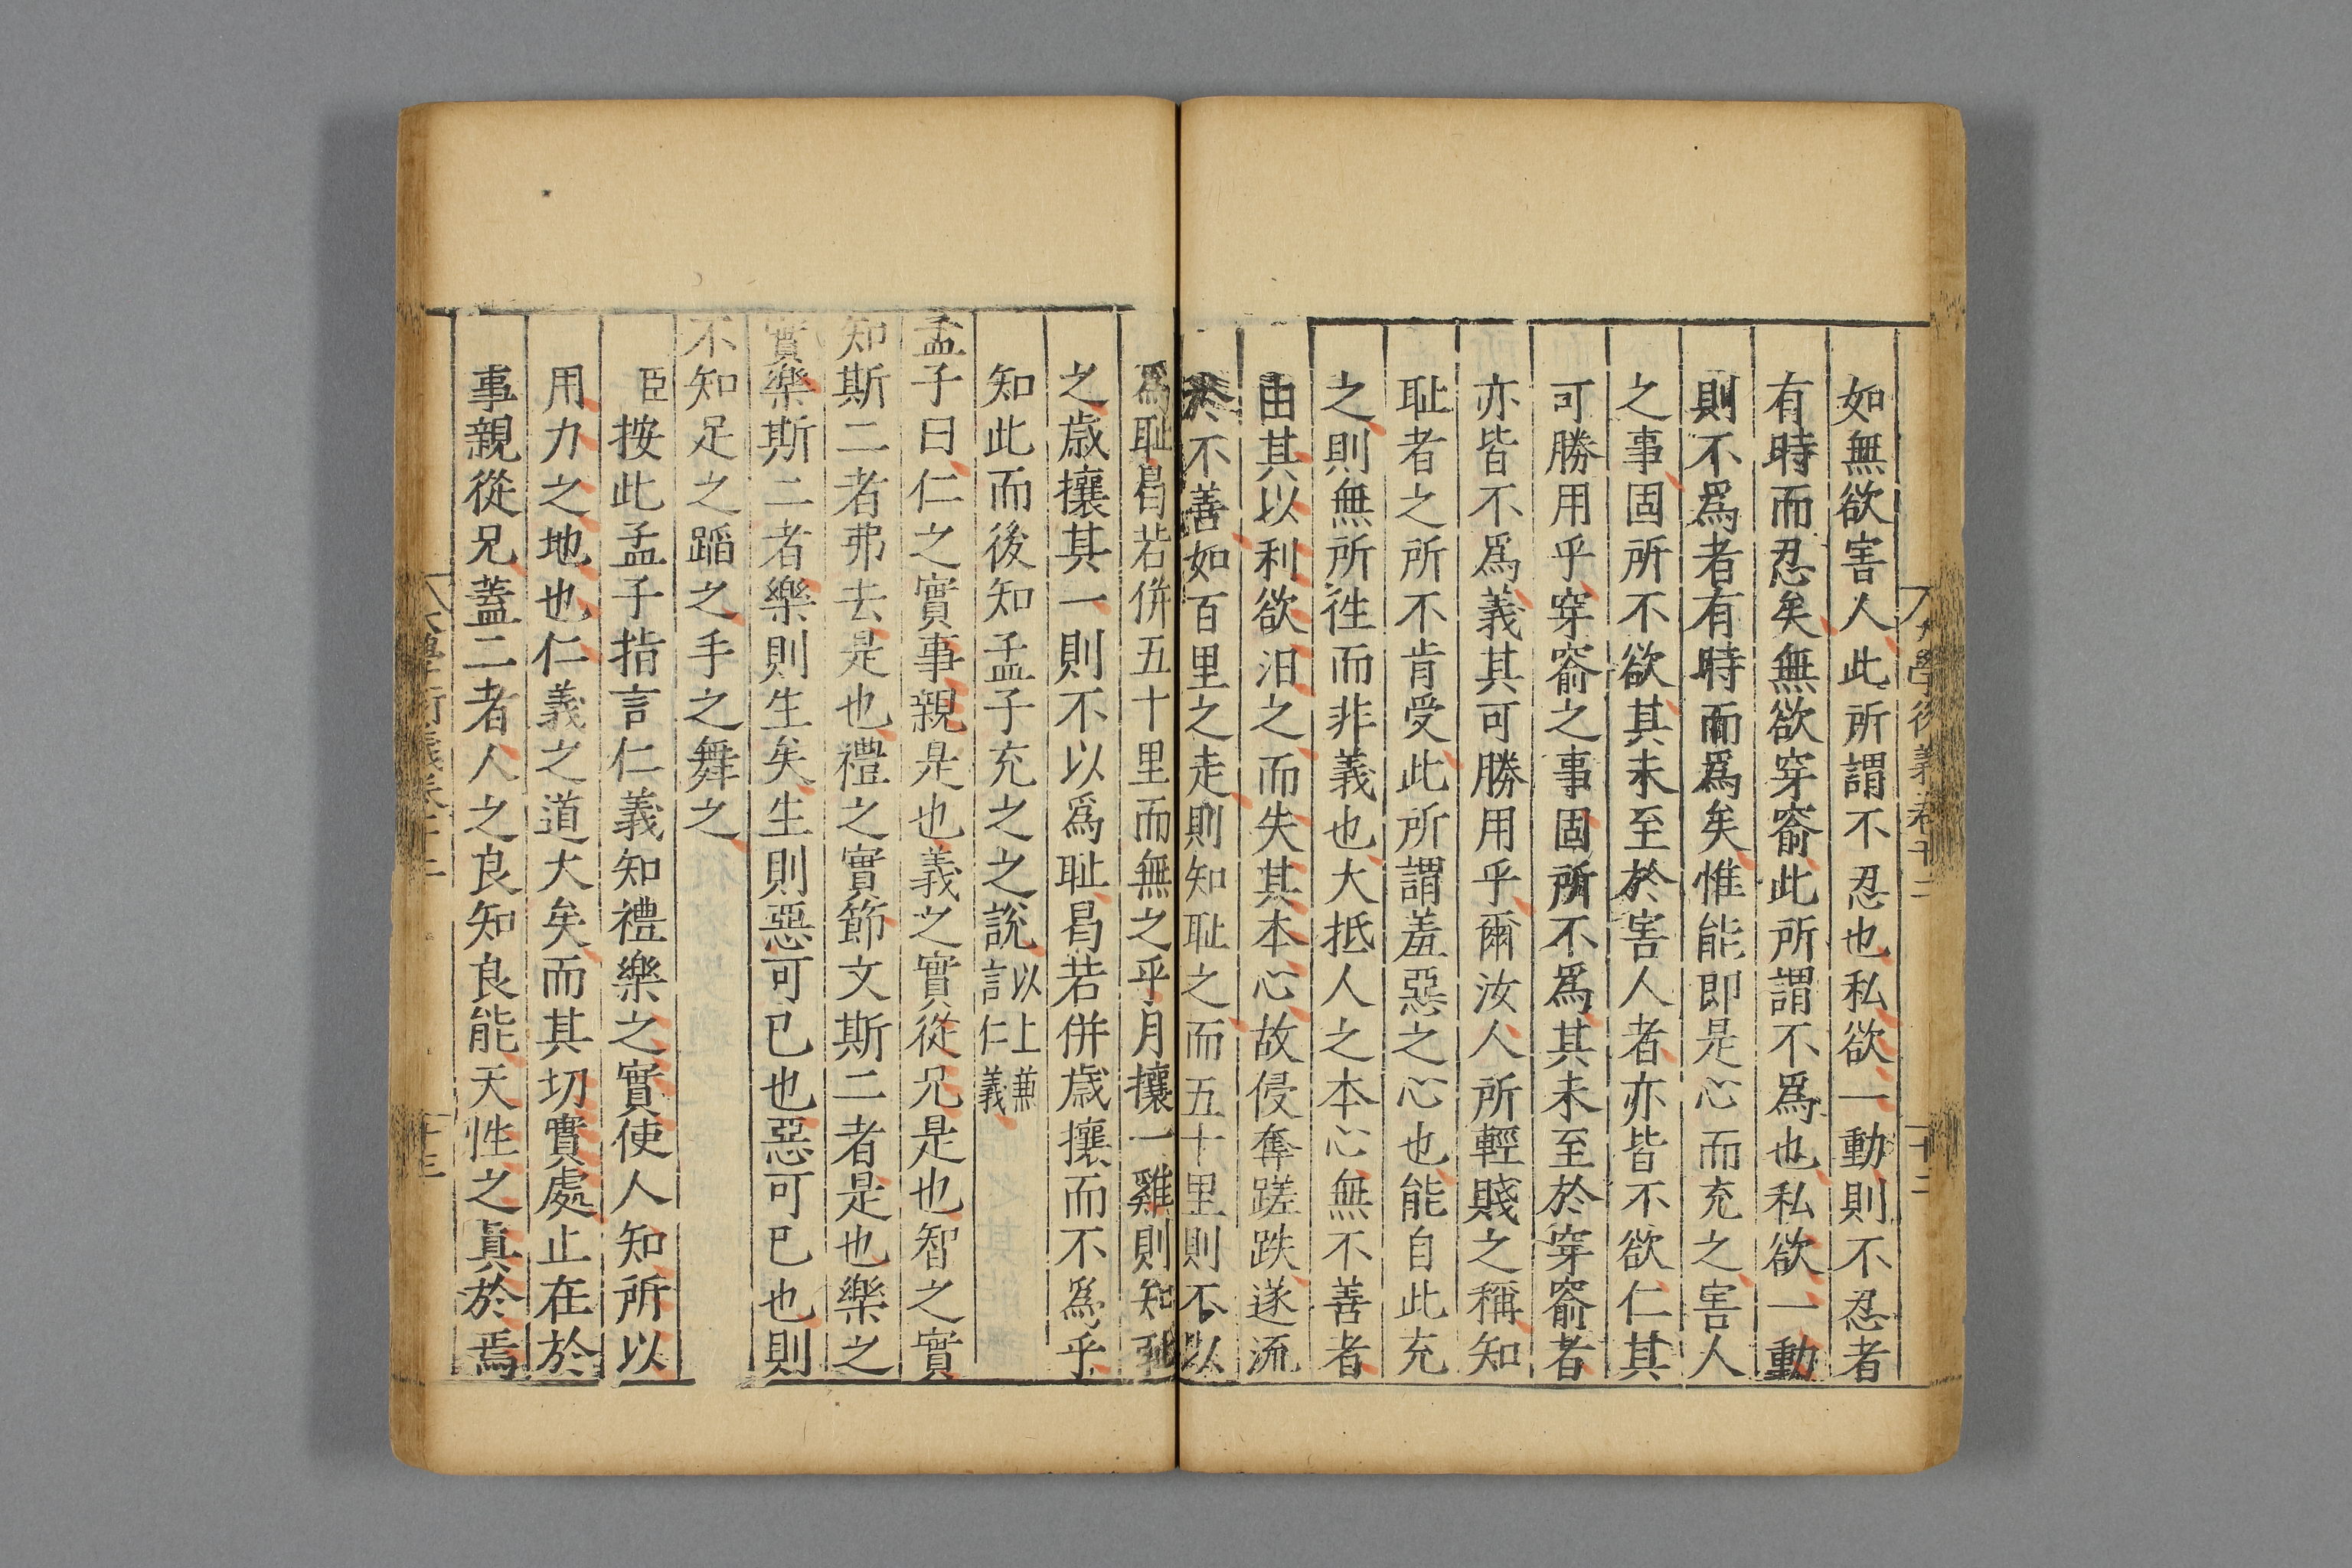 如無欲害人此所謂不忍也私欲一動則不忍者
有時而忍矣無欲穿窬此所謂不為也私欲一動
則不為者有時而為矣惟能即是心而充之害人
之事固所不欲其未至於害人者亦皆不欲仁其
可勝用乎穿窬之事固所不為其未至於穿窬者
亦皆不為義其可勝用乎爾汝人所輕賤之稱知
耻者之所不肯受此所謂羞惡之心也能自此充
之則無所徃而非義也大抵人之本心無不善者
由其以利欲汨之而失其本心故侵奪蹉跌遂流
於不善如百里之走則知耻之而五十里則不以
為耻曷若併五十里而無之乎月攘一雞則知耻
之歲攘其一則不以為耻曷若併歲攘而不為乎
知此而後知孟子充之之說以上兼言仁義
孟子曰仁之實事親是也義之實從兄是也智之實
知斯二者弗去是也禮之實節文斯二者是也樂之
實樂斯二者樂則生矣生則惡可已也惡可已也則
不知足之蹈之手之舞之
臣按此孟子指言仁義知禮樂之實使人知所以
用力之地也仁義之道大矣而其切實處止在於
事親從兄蓋二者人之良知良能天性之眞於焉